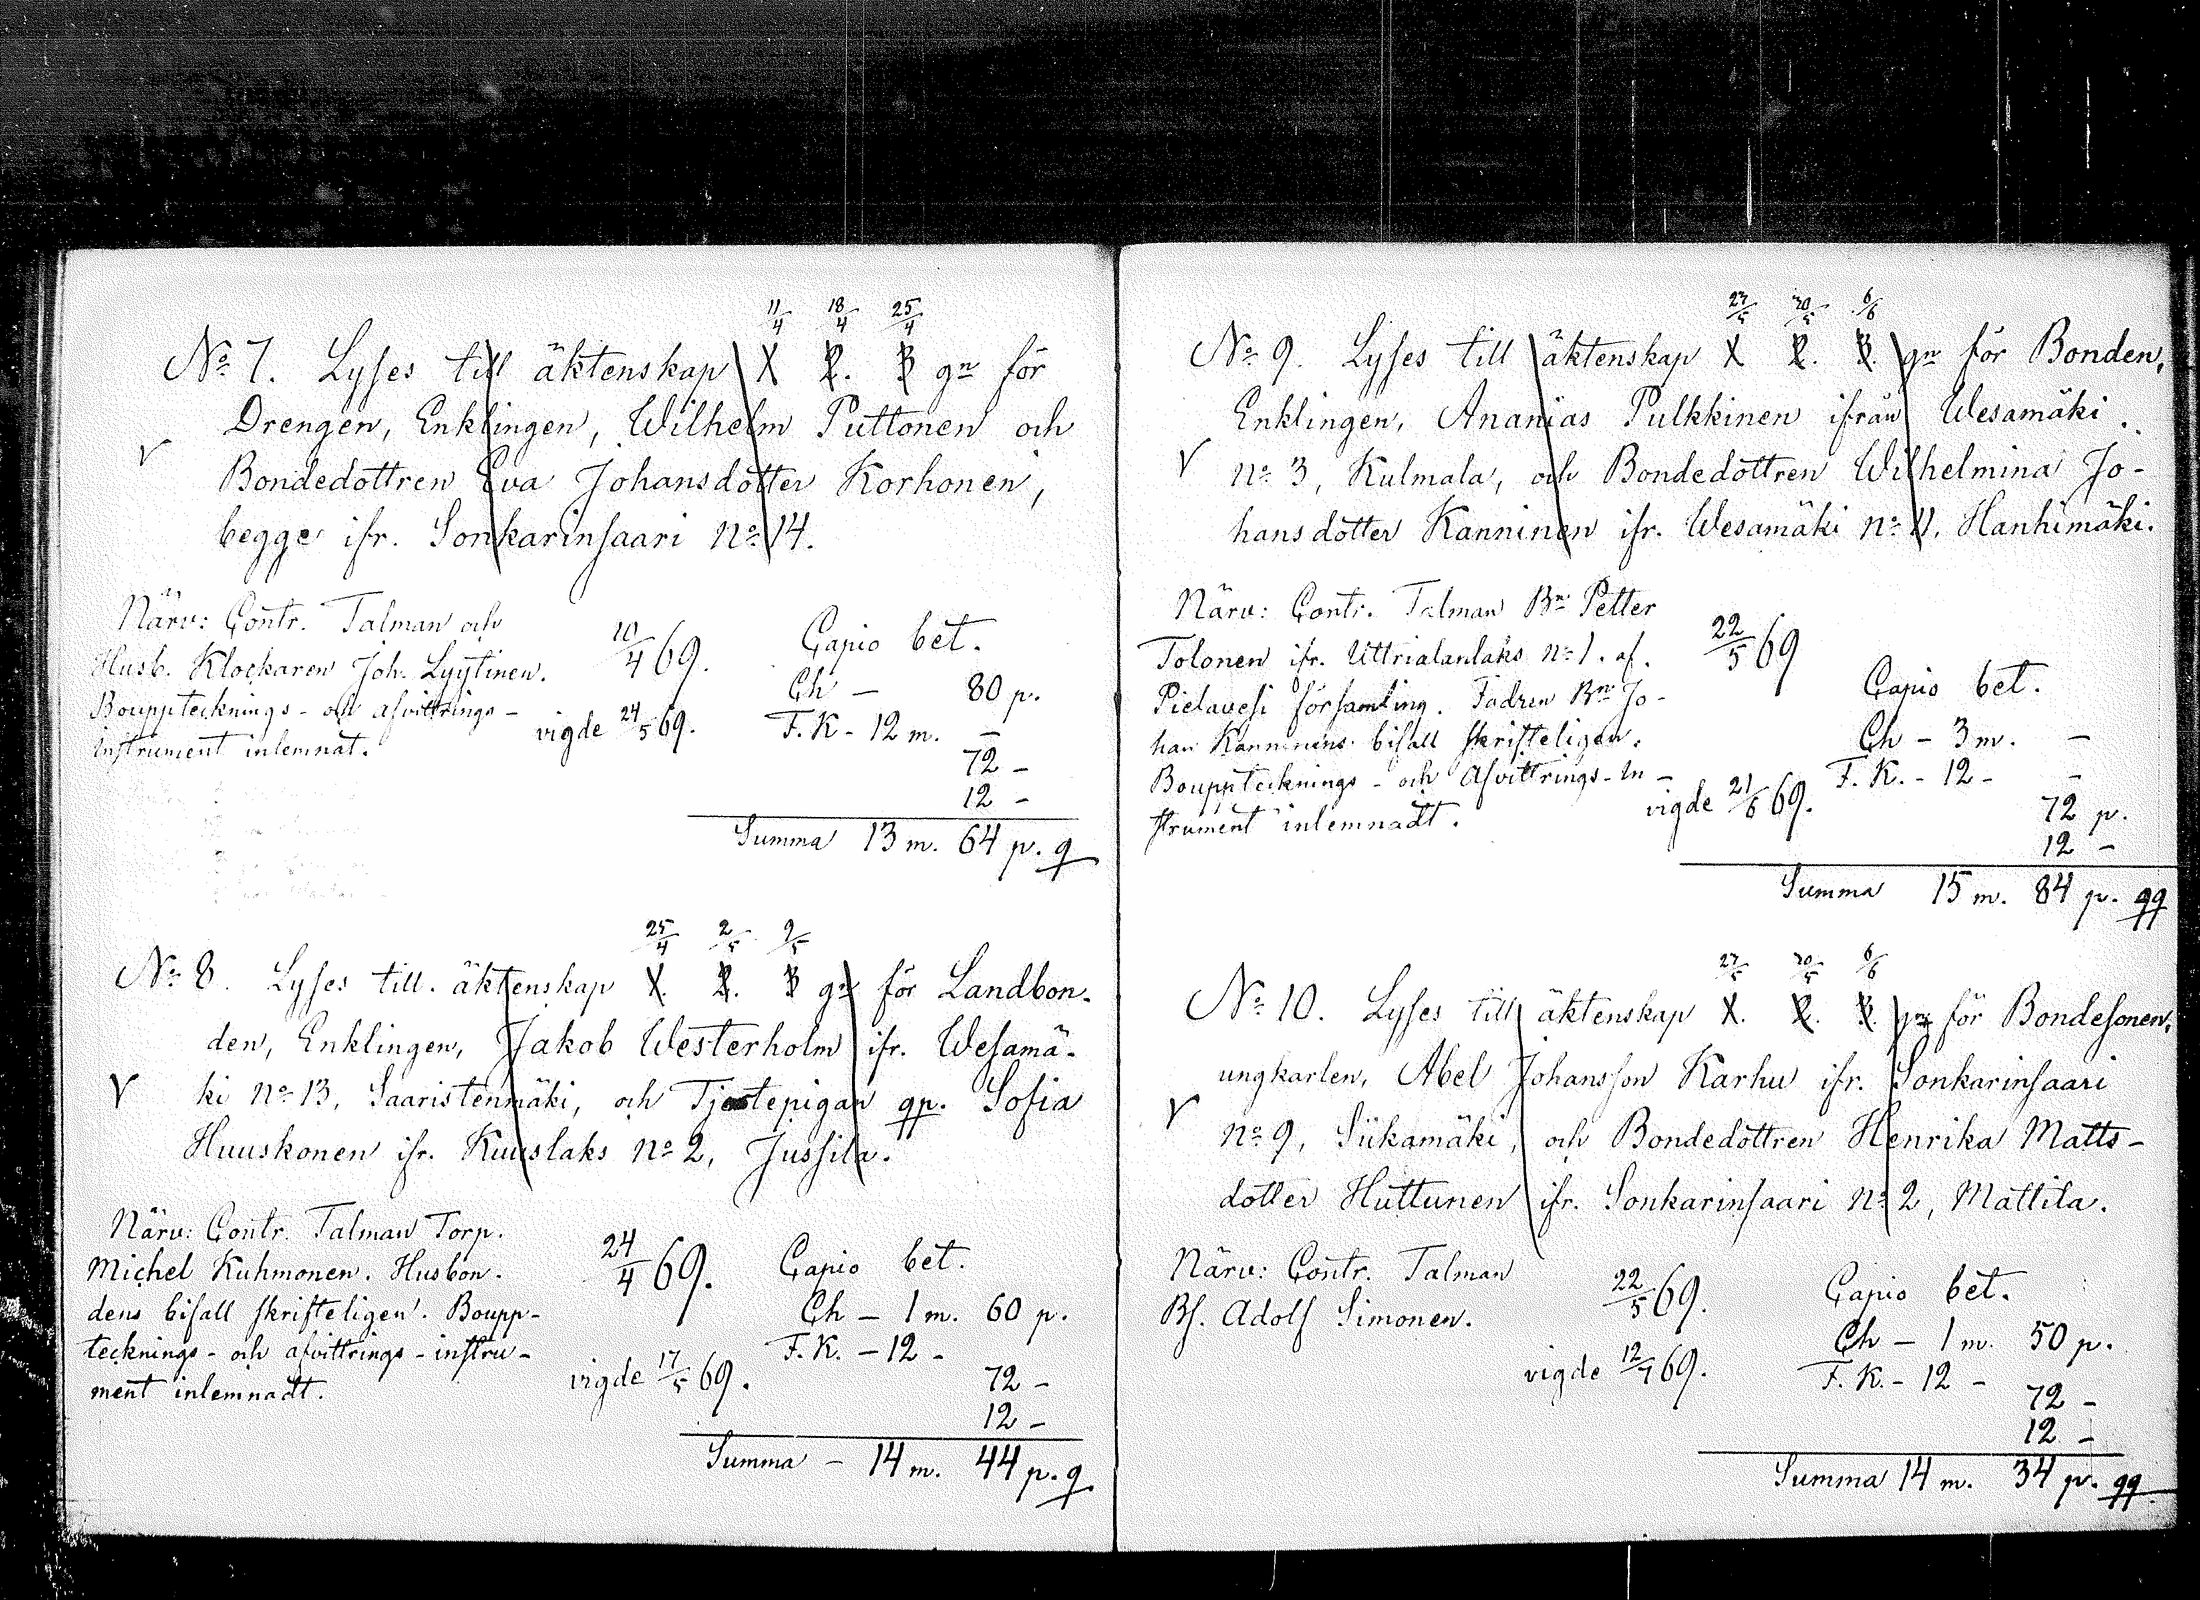 11/4 18/4 25/4
No 7. Lyses till äktenskap 1 2. 3 gr för
Drengen, Enklingen, Wilhelm Puttonen och
V
Bondedottren Eva Johansdotter Korhonen,
begge ifr. Sonkarinsaari no 14.
Närv: Contr. Talman och
Husb. Klockaren Joh. Lyytinen.
Bouppteknings- och afvittrings-
Instrument inlemnat.
10/4 69.
vigde 24/5 69.
Capio bet.
Ch — 80 p.
F. K - 12 m. —
72 —
12 —
Summa 13 m. 64 p. q
25/4 2/5 9/5
No 8. Lyses till äktenskap 1. 2. 3 gr för Landbon-
den, Enklingen, Jakob Westerholm ifr. Wesamä-
V
ki no 13, Saaristenmäki, och Tjestepigan qp. Sofia
Huuskonen ifr. Kuuslaks no 2, Jussila.
Närv: Contr. Talman Torp.
Michel Kuhmonen. Husbon-
dens bifall skrifteligen. Boupp-
tecknings- och afvittrings-instru-
ment inlemnadt.
24/4 69.
vigde 17/5 69.
Capio bet.
Ch — 1 m. 60 p.
F. K. — 12 -
72 —
12 —
Summa — 14 m. 44 p. q
23/5 30/5 6/6
No 9. Lyses till äktenskap 1 2. 3. gr för Bonden,
Enklingen, Ananias Pulkkinen ifrån Wesamäki
V
no 3, Kulmala, och Bondedottren Wilhelmina Jo-
hansdotter Kanninen ifr. Wesamäki no 11, Hanhimäki.
Närv: Contr. Talman Bn Petter
Tolonen ifr. Uttrialanlaks no 1. af.
Pielavesi församling. Fadren Bn Jo-
han Kanninens bifall skrifteligen.
Bouppteknings- och Afvittrings-In-
strument inlemnadt.
22/5 69
vigde 21/6 69.
Capio bet.
Ch — 3 m. —
F. K. - 12 - —
72 p.
12 —
Summa 15 m. 84 p. qq
23/5 30/5 6/6
No 10. Lyses till äktenskap 1. 2. 3. gr för Bondesonen,
ungkarlen, Abel Johansson Karhu ifr. Sonkarinsaari
V
no 9, Siikamäki, och Bondedottren Henrika Matts-
dotter Huttunen ifr. Sonkarinsaari no 2, Mattila.
Närv: Contr. Talman
Bs. Adolf Simonen.
22/5 69.
vigde 12/7 69.
Capio bet.
Ch — 1 m. 50 p.
F. K. - 12 -
72 —
12 —
Summa 14 m. 34 p. qq.